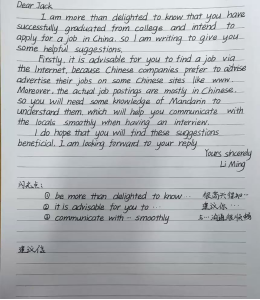 Dear Jack
I am more than delighted to know that you have
successfully graduated from college and intend to
apply for a job in China. so I am writing to give you
some helpful suggestions.
Firstly, it is advisable for you to find a job via
the Internet, because Chinese companies prefer to
advertise their jobs on some Chinese sites like www.
Moreover, the actual job postings are mostly in Chinese.
so you will need some knowledge of Mandarin to
understand them, which will help you communicate with
the locals smoothly when having an interview.
I do hope that you will find these suggestions
beneficial. I am looking forward to your reply.
Yours sincerely
Li Ming
闪光点:
① be more than delighted to know… 很高兴得知…
② it is advisable for you to… 建议你…
③ communicate with - smoothly 与…沟通很顺畅
建议信